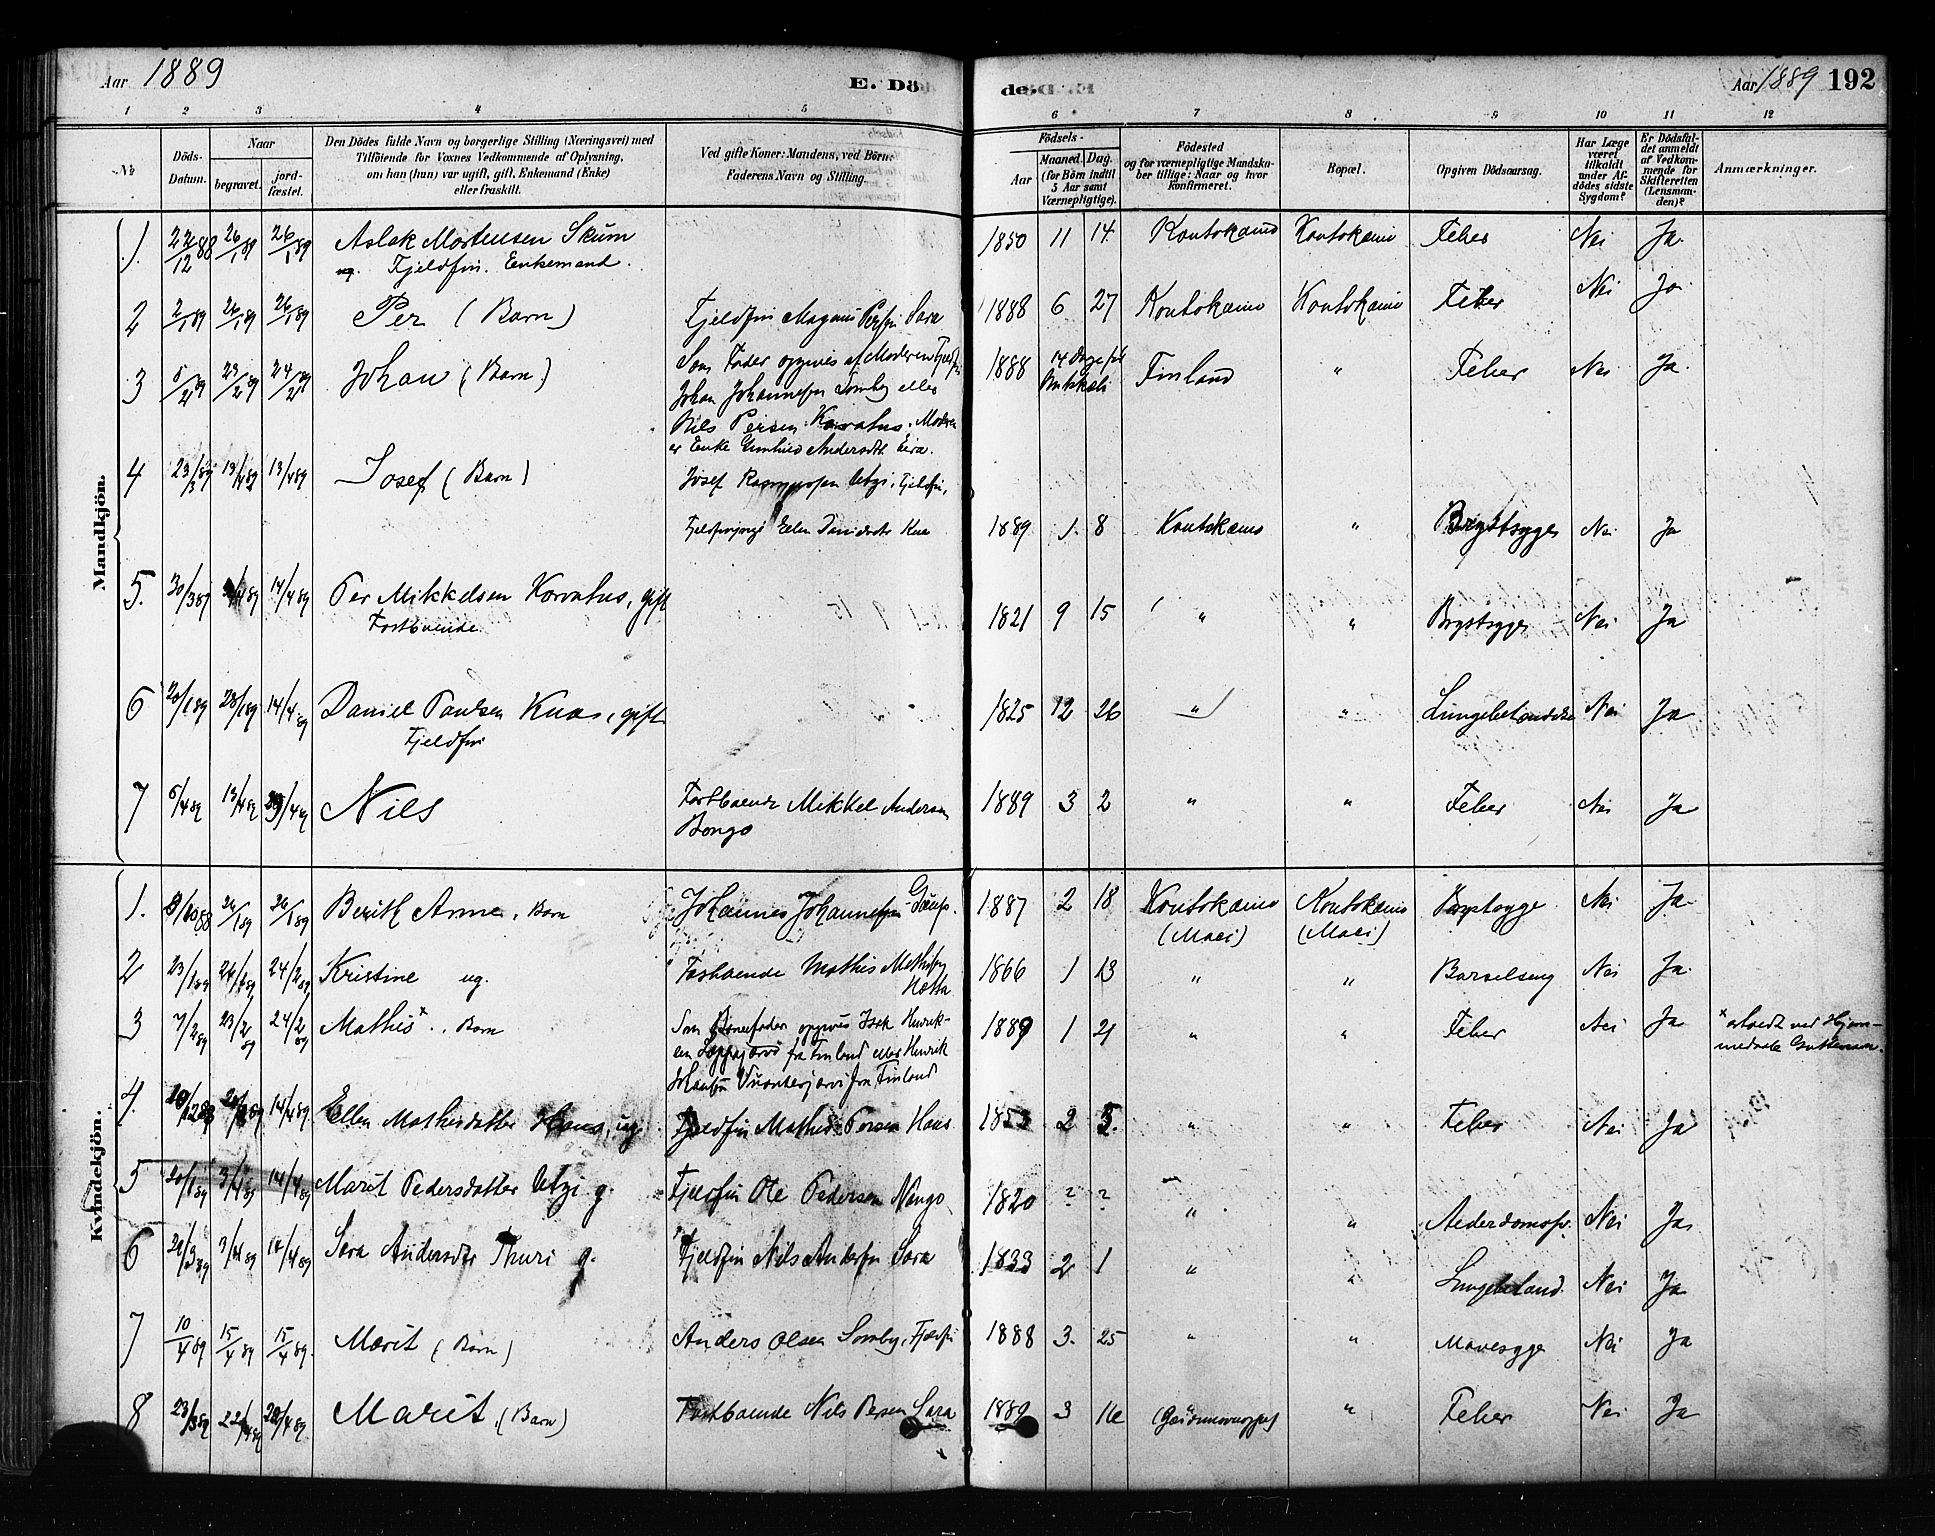 Aar 1889
E. Dö
de.
Aar 1889 192
1 2 3 4 5 6 7 8 9 10 11 12
No.
Döds-Datum.
Naar
begravet.
jord-fæstet.
Den Dödes fulde Navn og borgerlige Stilling (Næringsvei) med
Tilföiende for Voxnes Vedkommende af Oplysning,
om han (hun) var ugift, gift, Enkemand (Enke)
eller fraskilt.
Ved gifte Koner: Mandens, ved Börn:
Faderens Navn og Stilling.
Födsels-
Aar
Maaned. Dag.
(for Börn indtil
5 Aar samt
Værnepligtige).
Födested
og for værnepligtige Mandska-
ber tillige: Naar og hvor
konfirmeret.
Bopæl.
Opgiven Dödsaarsag.
Har Læge
været
tilkaldt
under Af-
dödes sidste
Sygdom?
Er Dödsfal-
det anmeldt
af Vedkom-
mende for
Skifteretten
(Lensman-
den)?
Anmærkninger.
Mandkjön.
1. 22/12 88 26/1 89 26/1 89 Aslak Mortensen Skum 1850 11 14 Koutokeino Koutokeino Feber Nei Ja
Fjeldfin. Enkemand.
2 2/1 89 26/1 89 26/1 89 Per (Barn) Fjeldfin Magnus Persen Sara 1888 6 27 Koutokeino Koutokeino Feber Nei Ja
3 5/2 89 23/2 89 24/2 89 Johan (Barn) Som Fader opgives af Moderen Fjeldfin 1888 14 Dage før Finland " Feber Nei Ja
Johan Johannesen Somby eller
Nils Persen Korvatus. Moderen
er Enke Gunhild Andersdt. Eira.
4 23/3 89 13/4 89 13/4 89 Josef (Barn) Josef Rasmussen Utzi, Fjeldfin,
Ellen Danielsdtr Knas 1889 1 8 Koutokeino " Brystsyge Nei Ja
5. 30/3 89 14/4 89 Per Mikkelsen Korvatus, gift 1821 9 15 " " Brystsyge Nei Ja
Fastboende
6 20/1 89 28/1 89 14/4 89 Daniel Paulsen Knas, gift 1825 12 26 " " Nei Ja
Fjeldfin
7 5/4 89 13/4 89 Nils Fastboende Mikkel Andersen 1889 3 2 " " Feber Nei Ja
Bongo
Kvindekjön.
1. 26/1 89 26/1 89 Berith Anne, Barn Johannes Johannesen Gaup. 1887 2 18 Koutokeino Koutokeino Brystsyge Nei Ja
(Maci) (Maci)
2 23/1 89 24/2 89 Kristine ug. Fastboende Mathis Mathisen 1866 1 13 " " Barselseng Nei Ja
Hætta
3 7/2 89 23/2 89 24/2 89 Mathis*, Barn Som Barnefader opgives Isak Henrik- 1889 1 21 " " Feber Nei Ja
sen fra Finland eller Henrik
Johansen fra Finland
4. 14/4 89 Ellen Mathisdatter Haas, ug. Fjeldfin Mathis Persen Haas 1853 2 5. " " Feber Nei Ja
5 20/1 89 3/4 89 14/4 89 Marit Pedersdatter Utzi g. Fjeldfin Ole Pedersen Nango 1820 ? ? " " Nei Ja
6 3/4 89 14/4 89 Sara Andersdtr Thuri g. Fjeldfin Nils Andersen Sara 1833 2 1 " " Nei Ja
7 10/4 89 15/4 89 15/4 89 Marit (Barn) Anders Olsen Somby, Fjeldfin 1888 3. 25 " " Mavesyge Nei Ja
8 23/3 89 22/4 89 Marit, (Barn) Fastboende Nils Persen Sara 1889 3 16 " Feber Nei Ja